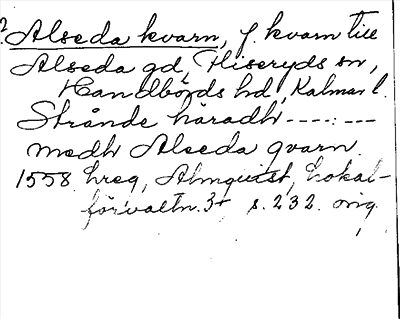 ? Alseda kvarn, f. kvarn till
Alseda gd, Hiseryds sn,
Handbörds hd, Kalmar l.
Strånde häradh ----: ---
medh Alseda qvarn.
1558 hreg, Almquist, Lokal-
förvaltn. 3: s. 232. orig.